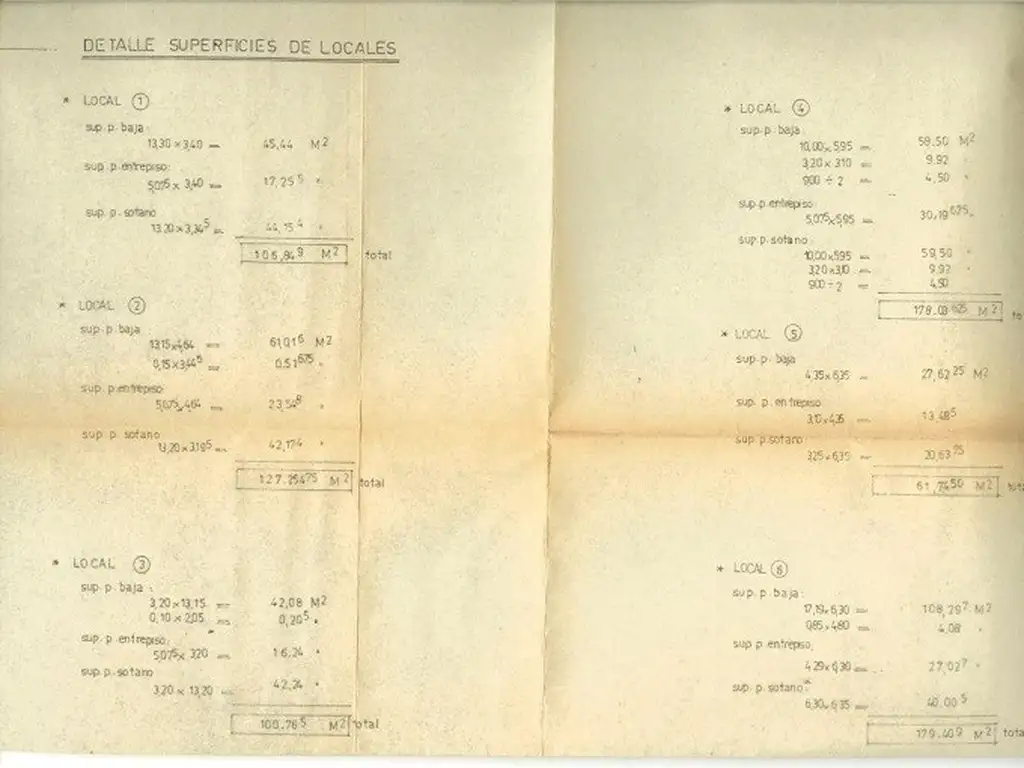 DETALLE SUPERFICIES DE LOCALES
* LOCAL ①
sup. p. baja:
13,30 × 3,40 = 45,44 M²
sup. p. entrepiso:
5,075 × 3,40 = 17,25⁵ "
sup. p. sotano
13.20 × 3,34⁵ = 44,15⁴ "
106,84⁹ M² total
* LOCAL ②
sup. p. baja
13,15 x 4,64 = 61,01⁶ M²
0,15 x 3,44⁵ = 0.51⁶⁷⁵ "
sup. p. entrepiso
5,075 x 4,64 = 23,54⁸ "
sup. p. sotano
13,20 × 3,19⁵ = 42,17⁴ "
127.254⁷⁵ M² total
* LOCAL ③
sup. p. baja:
3,20 × 13,15 = 42,08 M²
0,10 × 2,05 = 0,20⁵ "
sup. p. entrepiso:
5,075 × 3,20 = 16.24 "
sup. p. sotano
3,20 × 13,20 = 42,24 "
100.76⁵ M² total
* LOCAL ④
sup. p. baja
10,00 x 5,95 = 59.50 M²
3,20 x 3,10 = 9.92 "
9,00 ÷ 2 = 4,50 "
sup. p. entrepiso
5,075 x 5,95 = 30,19⁶²⁵ "
sup. p. sotano:
10,00 x 5,95 = 59,50 "
3,20 x 3,10 = 9.92 "
9,00 ÷ 2 = 4,50
178.03⁶²⁵ M²
* LOCAL ⑤
sup. p. baja
4,35 x 6,35 = 27,62²⁵ M²
sup. p. entrepiso
3,10 x 4,35 = 13,48⁵
sup. p. sotano
3,25 x 6,35 = 20,63⁷⁵
61,74⁵⁰ M²
* LOCAL ⑥
sup. p. baja:
17,19 x 6,30 = 108,29⁷ M²
0,85 x 4,80 = 4,08 "
sup. p. entrepiso
4,29 x 6,30 = 27,02⁷ "
sup. p. sotano:
6,30 x 6,35 = 40.00⁵ "
179.40⁹ M² total